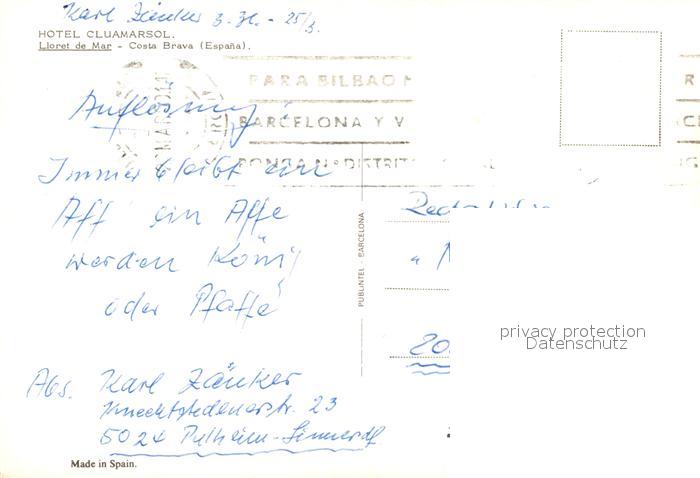 Karl Zänker z. Zt. - 25/3.
HOTEL CLUAMARSOL.
Lloret de Mar - Costa Brava (España).
PARA BILBAO
BARCELONA Y V
PONGA Nº DISTRIT
Auflösung!
Immer bleibt ein
Aff' ein Affe
werden König
oder Pfaffe
PUBLINTEL - BARCELONA
"
20
privacy protection
Datenschutz
Abs. Karl Zänker
Knechtstedenerstr. 23
5024 Pulheim-Sinnersdf
Made in Spain.